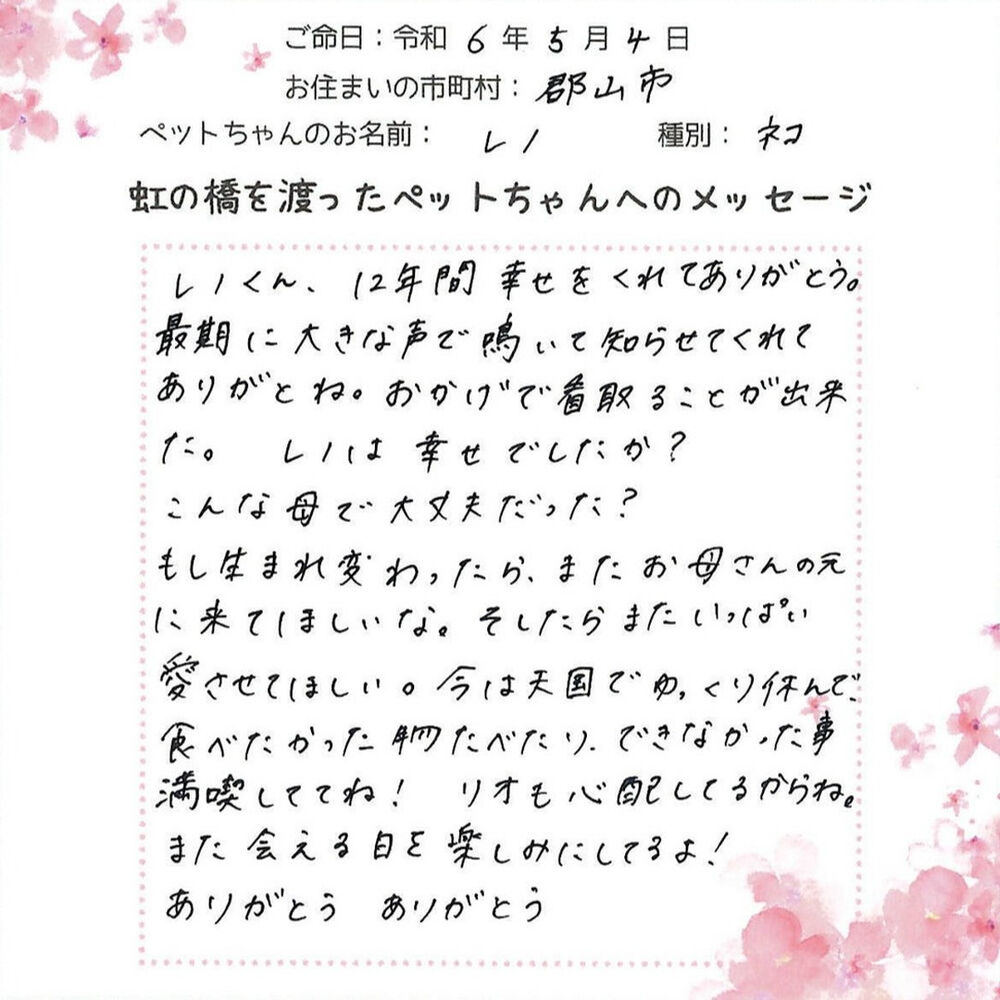 ご命日：令和 6 年 5 月 4 日
お住まいの市町村： 郡山市
ペットちゃんのお名前： レノ 種別： ネコ
虹の橋を渡ったペットちゃんへのメッセージ
レノくん、12年間 幸せをくれてありがとう。
最期に大きな声で鳴いて知らせてくれて
ありがとね。おかげで看取ることが出来
た。 レノは 幸せでしたか？
こんな母で大丈夫だった？
もし生まれ変わったら、またお母さんの元
に来てほしいな。そしたらまたいっぱい
愛させてほしい。今は天国でゆっくり休んで、
食べたかった物たべたり、できなかった事
満喫しててね！ リオも心配してるからね。
また会える日を楽しみにしてるよ！
ありがとう ありがとう